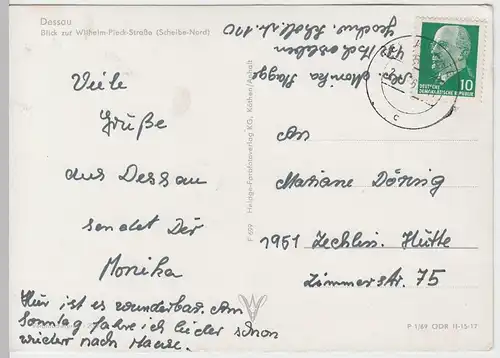 Dessau
Blick zur Wilhelm-Pieck-Straße (Scheibe-Nord)
Viele
Grüße
aus Dessau
sendet Dir
Monika
Hier ist es wunderbar. Am
Sonntag fahre ich leider schon
wieder nach Hause.
F 669 Heldge-Farbfotoverlag KG, Köthen/Anhalt
Monika
110
DEUTSCHE
DEMOKRATISCHE REPUBLIK
10
An
Mariane Döring
1951 Zechlin. Hütte
Zimmerstr. 75
P 1/69 ODR II-15-17